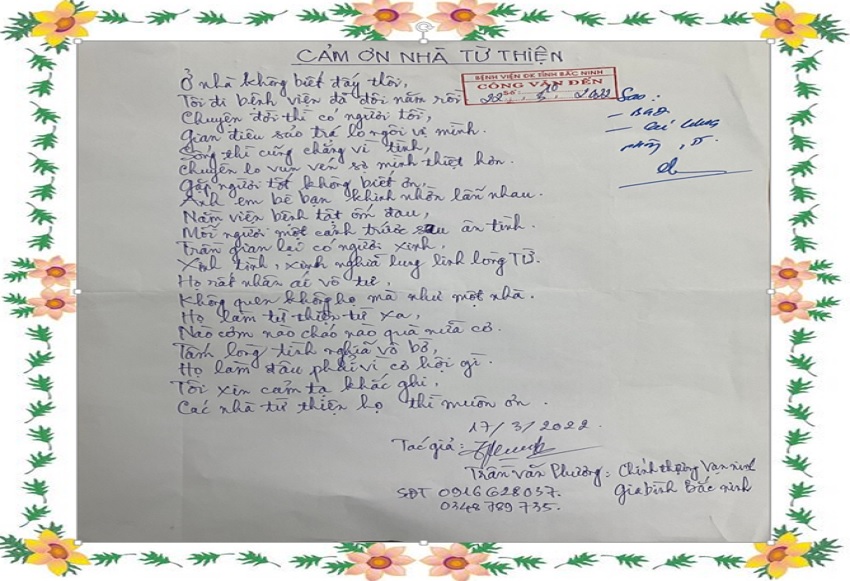 CẢM ƠN NHÀ TỪ THIỆN
BỆNH VIỆN ĐK TỈNH BẮC NINH
CÔNG VĂN ĐẾN
Ở nhà không biết đấy thôi,
Tôi đi bệnh viện đã đôi năm rồi
Chuyện đời thì có người tồi,
Gian điêu sảo trá lo ngồi vì mình.
Sống thì cũng chẳng vì tình,
Chuyện lo vun vén sợ mình thiệt hơn.
Gặp người tốt không biết ơn,
Anh em bè bạn khinh nhờn lẫn nhau.
Nằm viện bệnh tật ốm đau,
Mỗi người một cảnh trước sau ân tình.
Trần gian lại có người xinh,
Xinh tình, xinh nghĩa lung linh lòng TỪ.
Họ rất nhân ái vô tư,
Không quen không họ mà như một nhà.
Họ làm từ thiện từ xa,
Nào cơm nào cháo nào quà nữa cơ.
Tấm lòng tình nghĩa vô bờ,
Họ làm đâu phải vì cơ hội gì.
Tôi xin cảm tạ khắc ghi,
Các nhà từ thiện họ thì muôn ơn.
17/3/2022.
Tác giả:
Trần Văn Phương: Chính thượng Vạn ninh
SĐT 0916628037. Gia bình Bắc ninh
0348789735.
Sao:
- BGĐ